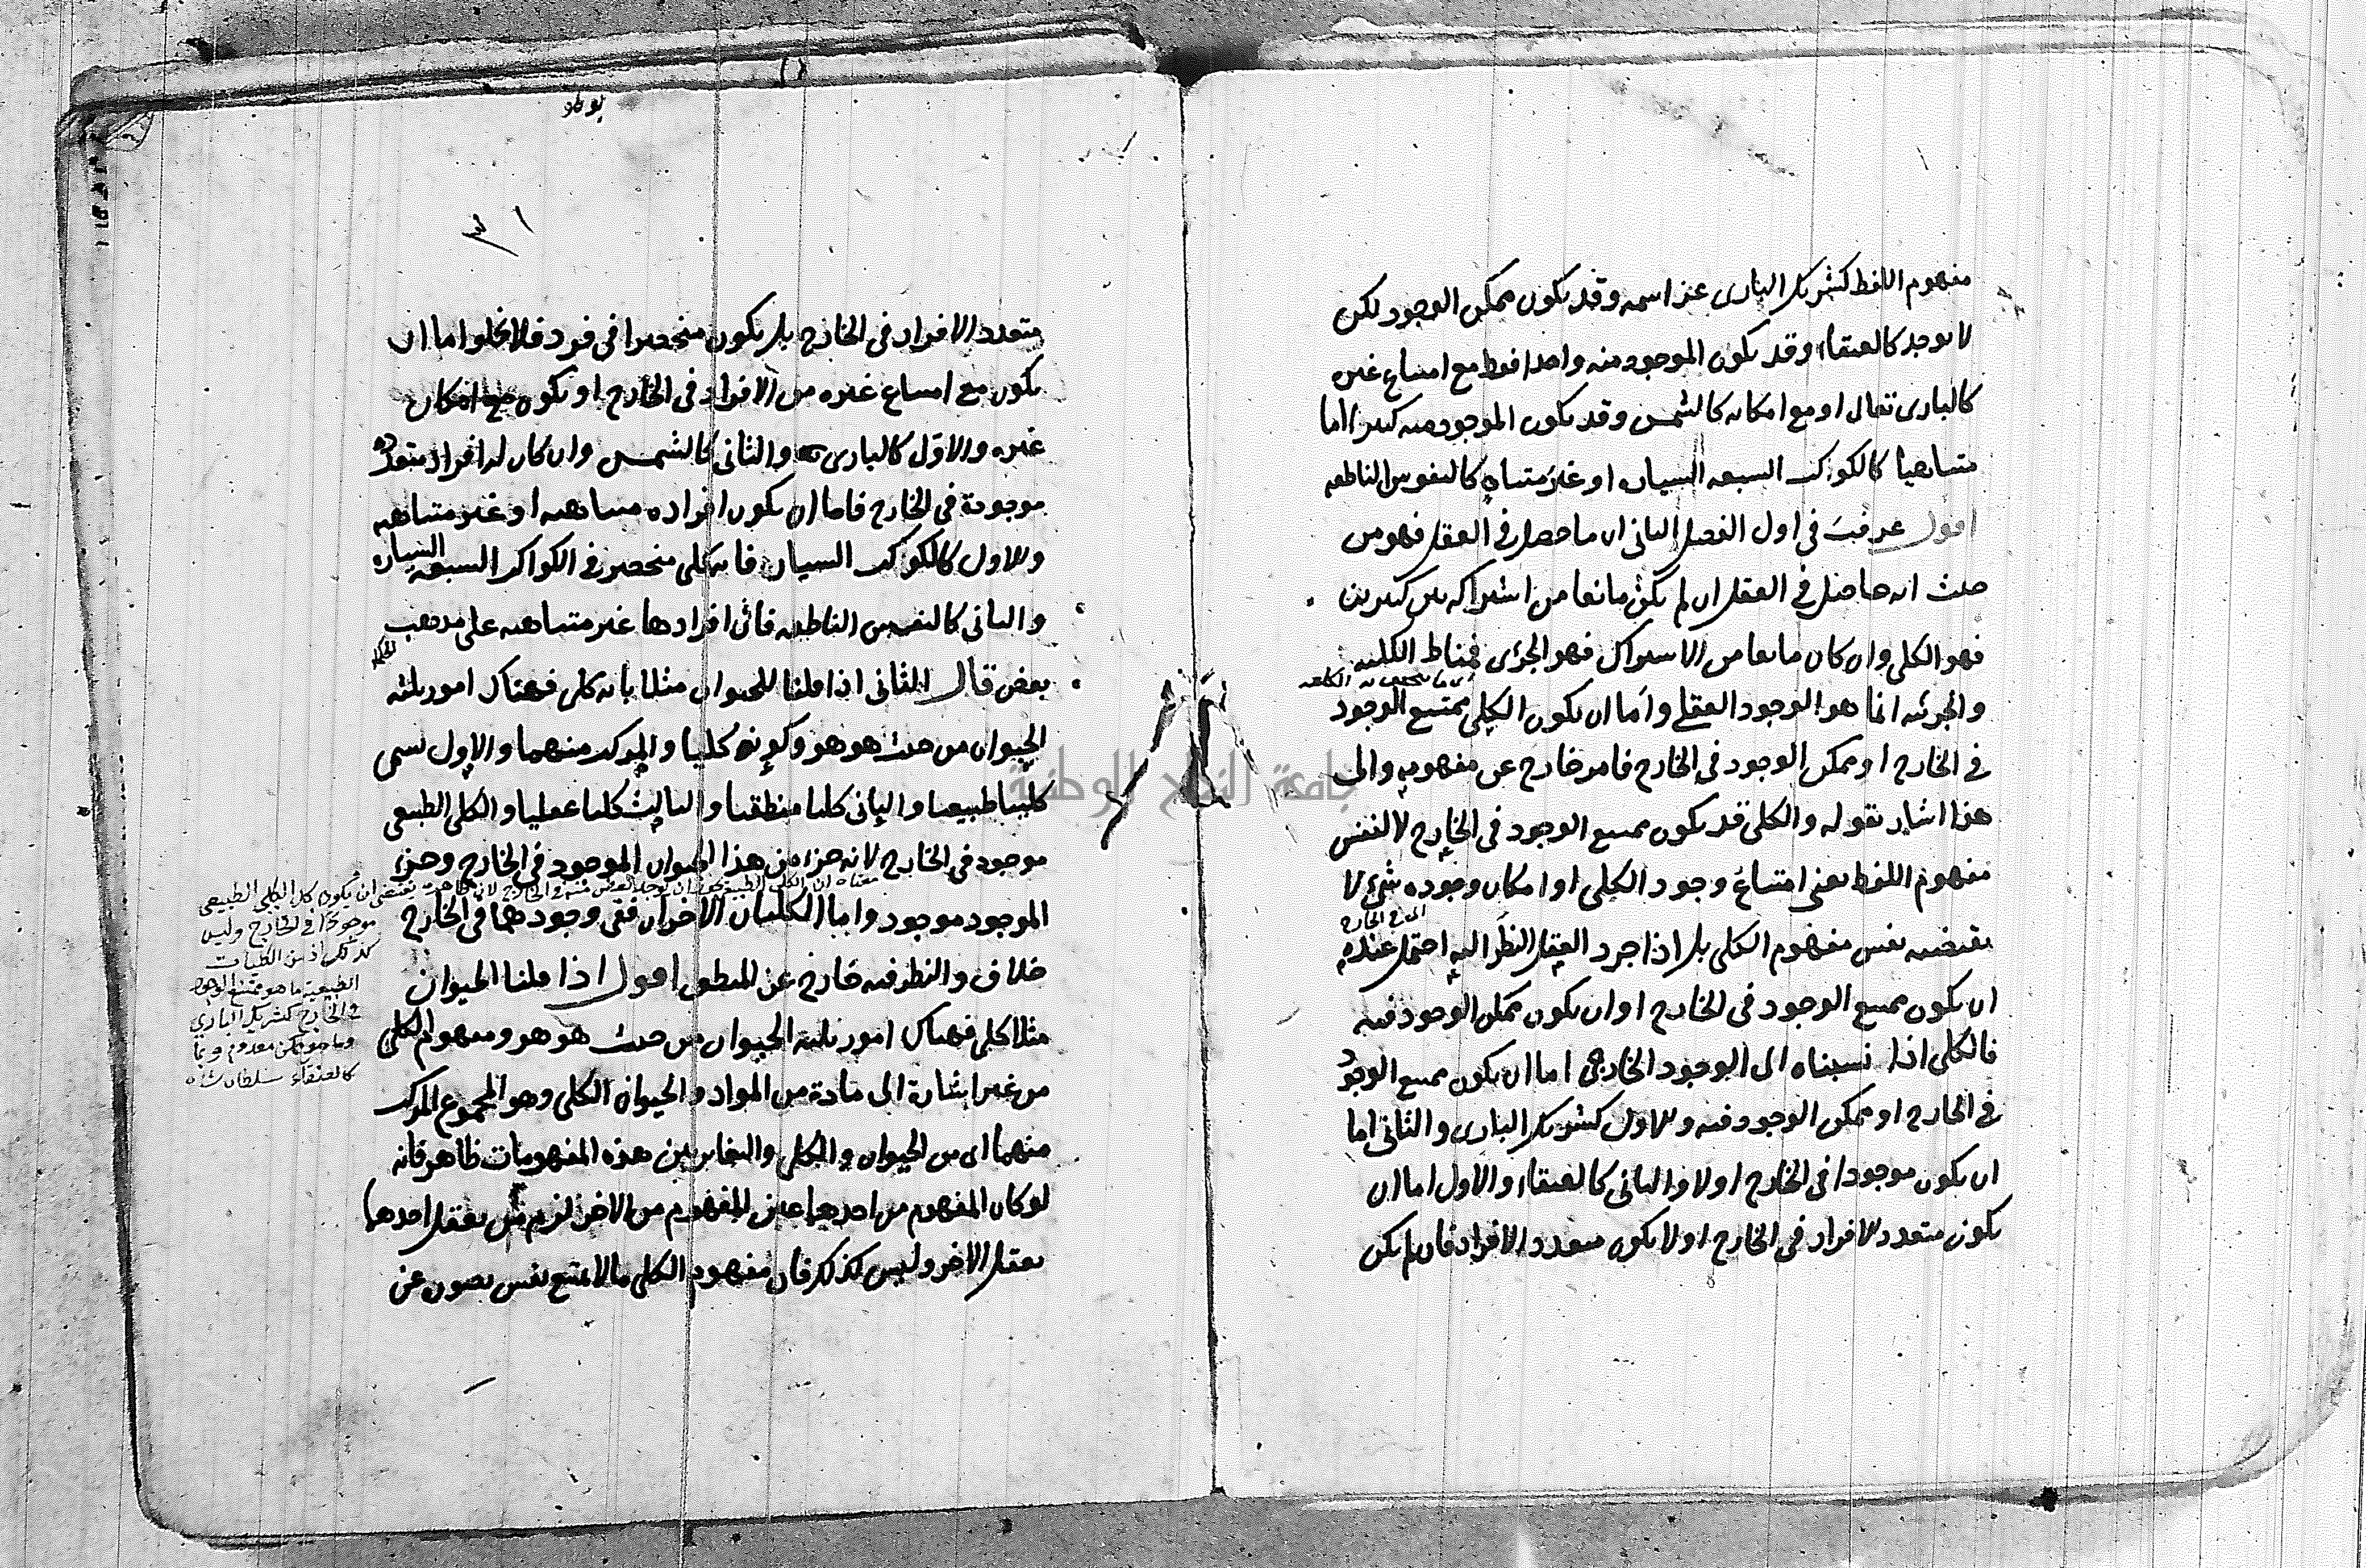 مفهوم اللفظ كشريك البارى عز اسمه وقد يكون ممكن الوجود لكن
لا يوجد كالعنقاء وقد يكون الموجود منه واحدا فقط مع امتناع غيره
كالبارى تعالى او مع امكانه كالشمس وقد يكون الموجود منه كثيرا اما
متناهيا كالكواكب السبعه السياره او غير متناه كالنفوس الناطقه
اقول عرفت فى اول الفصل الثانى ان ما حصل فى العقل فهو من
حيث انه حاصل فى العقل ان لم يكن مانعا من اشتراكه بين كثيرين
فهو الكلى وان كان مانعا من الاشتراك فهو الجزئى فمناط الكليه
اى ما يتحقق به الكليه
والجزئيه انما هو الوجود العقلى واما ان يكون الكلى ممتنع الوجود
فى الخارج او ممكن الوجود فى الخارج فامر خارج عن مفهومه والى
هذا اشار بقوله والكلى قد يكون ممتنع الوجود فى الخارج لا لنفس
مفهوم اللفظ يعنى امتناع وجود الكلى او امكان وجوده شئ لا
اى فى الخارج
يقتضيه نفس مفهوم الكلى بل اذا جرد العقل النظر اليه احتمل عنده
ان يكون ممتنع الوجود فى الخارج او ان يكون ممكن الوجود فيه
فالكلى اذا نسبناه الى الوجود الخارجى اما ان يكون ممتنع الوجود
فى الخارج او ممكن الوجود فيه والاول كشريك البارى والثانى اما
ان يكون موجودا فى الخارج او لا والثانى كالعنقاء والاول اما ان
يكون متعدد الافراد فى الخارج او لا يكون متعدد الافراد فان لم يكن
متعدد الافراد فى الخارج بل يكون منحصرا فى فرد فلا يخلو اما ان
يكون مع امتناع غيره من الافراد فى الخارج او يكون مع امكان
غيره والاول كالبارى تع والثانى كالشمس وان كان له افراد متعدده
موجودة فى الخارج فاما ان يكون افراده متناهيه او غير متناهيه
والاول كالكوكب السيار فانه كلى منحصر فى الكواكب السبعه السياره
والثانى كالنفس الناطقه فان افرادها غير متناهيه على مذهب
بعض الحكماء قال الثانى اذا قلنا للحيوان مثلا بانه كلى فهناك امور ثلثه
الحيوان من حيث هو هو وكونه كليا والمركب منهما والاول يسمى
كليا طبيعيا والثانى كليا منطقيا والثالث كليا عقليا والكلى الطبيعى
موجود فى الخارج لانه جزء من هذا الحيوان الموجود فى الخارج وجزء
الموجود موجود واما الكليان الاخران ففى وجودهما فى الخارج
خلاف والنظر فيه خارج عن المنطق اقول اذا قلنا الحيوان
مثلا كلى فهناك امور ثلثه الحيوان من حيث هو هو ومفهوم الكلى
من غير اشارة الى مادة من المواد والحيوان الكلى وهو المجموع المركب
منهما اى من الحيوان والكلى والتغاير بين هذه المفهومات ظاهر فانه
لو كان المفهوم من احدهما عين المفهوم من الاخر لزم من تعقل احدهما
تعقل الاخر وليس كذلك فان مفهوم الكلى ما لا يمنع نفس تصوره عن
معناه ان الكلى الطبيعى يجوز ان يوجد البعض منه فى الخارج لان ظاهره يقتضى ان يكون كل الكلى الطبيعى
موجودا فى الخارج وليس
كذلك اذ من الكليات
الطبيعية ما هو ممتنع الوجود
فى الخارج كشريك البارى
وما هو ممكن معدوم
كالعنقاء سلطان شاه